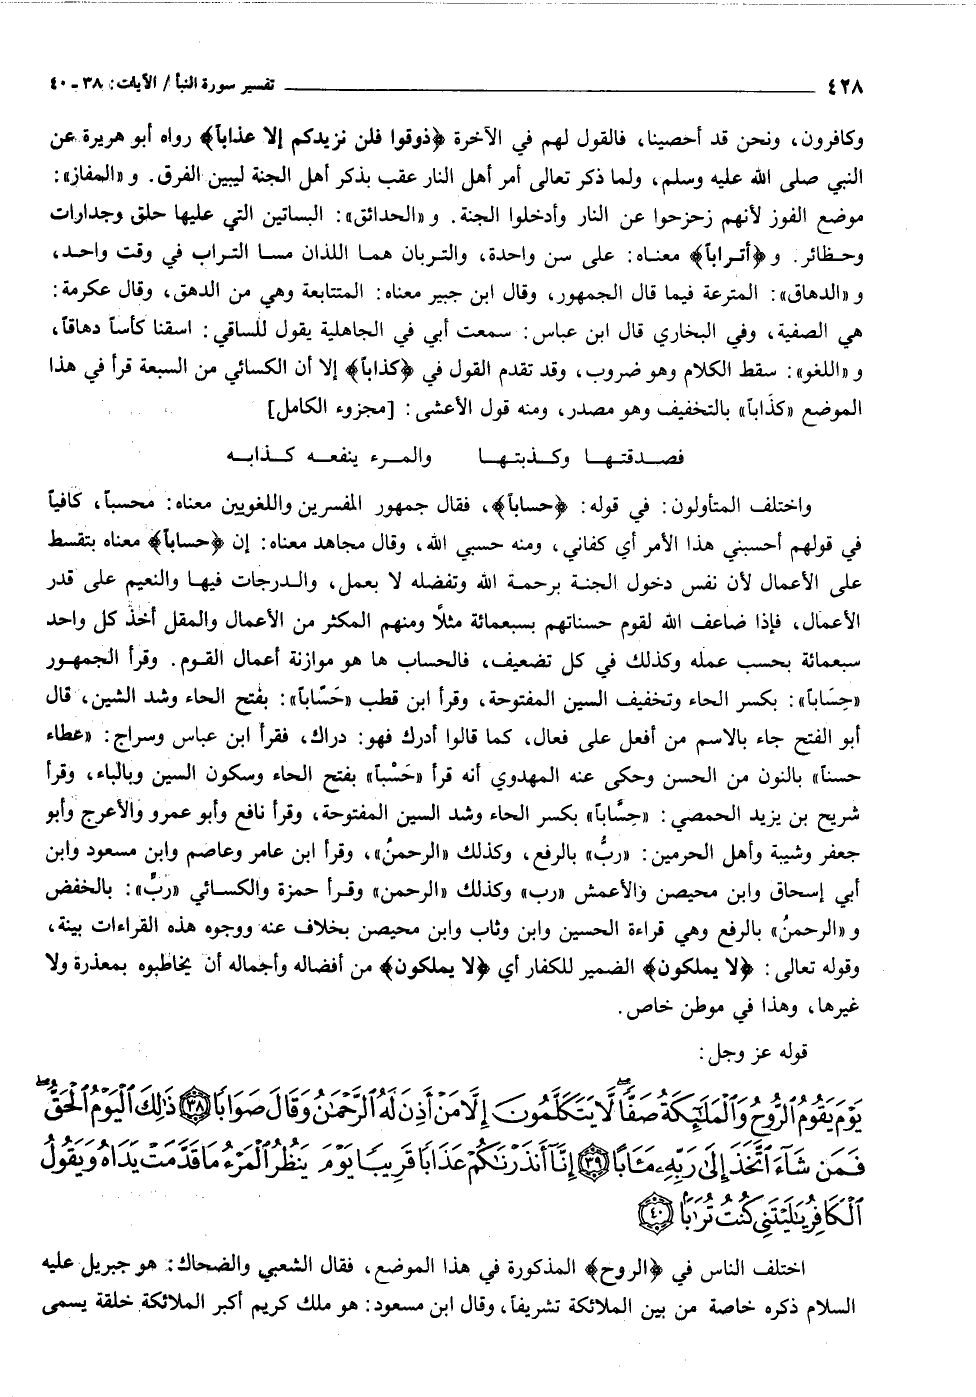 ٤٢٨ تفسير سورة النبأ / الآيات: ٣٨ - ٤٠
وكافرون، ونحن قد أحصينا، فالقول لهم في الآخرة ﴿ذوقوا فلن نزيدكم إلا عذاباً﴾ رواه أبو هريرة عن
النبي صلى الله عليه وسلم، ولما ذكر تعالى أمر أهل النار عقب بذكر أهل الجنة ليبين الفرق. و «المفاز»:
موضع الفوز لأنهم زحزحوا عن النار وأدخلوا الجنة. و «الحدائق»: البساتين التي عليها حلق وجدارات
وحظائر. و ﴿أتراباً﴾ معناه: على سن واحدة، والتربان هما اللذان مسا التراب في وقت واحد،
و «الدهاق»: المترعة فيما قال الجمهور، وقال ابن جبير معناه: المتتابعة وهي من الدهق، وقال عكرمة:
هي الصفية، وفي البخاري قال ابن عباس: سمعت أبي في الجاهلية يقول للساقي: اسقنا كأساً دهاقاً،
و «اللغو»: سقط الكلام وهو ضروب، وقد تقدم القول في ﴿كذاباً﴾ إلا أن الكسائي من السبعة قرأ في هذا
الموضع «كذَاباً» بالتخفيف وهو مصدر، ومنه قول الأعشى: [مجزوء الكامل]
فصدقتها وكذبتها والمرء ينفعه كذابه
واختلف المتأولون: في قوله: ﴿حساباً﴾، فقال جمهور المفسرين واللغويين معناه: محسباً، كافياً
في قولهم أحسبني هذا الأمر أي كفاني، ومنه حسبي الله، وقال مجاهد معناه: إن ﴿حساباً﴾ معناه بتقسط
على الأعمال لأن نفس دخول الجنة برحمة الله وتفضله لا بعمل، والدرجات فيها والنعيم على قدر
الأعمال، فإذا ضاعف الله لقوم حسناتهم بسبعمائة مثلاً ومنهم المكثر من الأعمال والمقل أخذ كل واحد
سبعمائة بحسب عمله وكذلك في كل تضعيف، فالحساب ها هو موازنة أعمال القوم. وقرأ الجمهور
«حِسَاباً»: بكسر الحاء وتخفيف السين المفتوحة، وقرأ ابن قطب «حَسّاباً»: بفتح الحاء وشد الشين، قال
أبو الفتح جاء بالاسم من أفعل على فعال، كما قالوا أدرك فهو: دراك، فقرأ ابن عباس وسراج: «عطاء
حسناً» بالنون من الحسن وحكى عنه المهدوي أنه قرأ «حَسْباً» بفتح الحاء وسكون السين وبالباء، وقرأ
شريح بن يزيد الحمصي: «حِسَّاباً» بكسر الحاء وشد السين المفتوحة، وقرأ نافع وأبو عمرو والأعرج وأبو
جعفر وشيبة وأهل الحرمين: «ربُّ» بالرفع، وكذلك «الرحمنُ»، وقرأ ابن عامر وعاصم وابن مسعود وابن
أبي إسحاق وابن محيصن والأعمش «رب» وكذلك «الرحمن» وقرأ حمزة والكسائي «ربِّ»: بالخفض
و «الرحمنُ» بالرفع وهي قراءة الحسين وابن وثاب وابن محيصن بخلاف عنه ووجوه هذه القراءات بينة،
وقوله تعالى: ﴿لا يملكون﴾ الضمير للكفار أي ﴿لا يملكون﴾ من أفضاله وأجماله أن يخاطبوه بمعذرة ولا
غيرها، وهذا في موطن خاص.
قوله عز وجل:
يَوْمَ يَقُومُ ٱلرُّوحُ وَٱلْمَلَٰٓئِكَةُ صَفًّا لَّا يَتَكَلَّمُونَ إِلَّا مَنْ أَذِنَ لَهُ ٱلرَّحْمَٰنُ وَقَالَ صَوَابًا ﴿٣٨﴾ ذَٰلِكَ ٱلْيَوْمُ ٱلْحَقُّ
فَمَن شَآءَ ٱتَّخَذَ إِلَىٰ رَبِّهِۦ مَـَٔابًا ﴿٣٩﴾ إِنَّآ أَنذَرْنَٰكُمْ عَذَابًا قَرِيبًا يَوْمَ يَنظُرُ ٱلْمَرْءُ مَا قَدَّمَتْ يَدَاهُ وَيَقُولُ
ٱلْكَافِرُ يَٰلَيْتَنِى كُنتُ تُرَٰبًا ﴿٤٠﴾
اختلف الناس في ﴿الروح﴾ المذكورة في هذا الموضع، فقال الشعبي والضحاك: هو جبريل عليه
السلام ذكره خاصة من بين الملائكة تشريفاً، وقال ابن مسعود: هو ملك كريم أكبر الملائكة خلقة يسمى